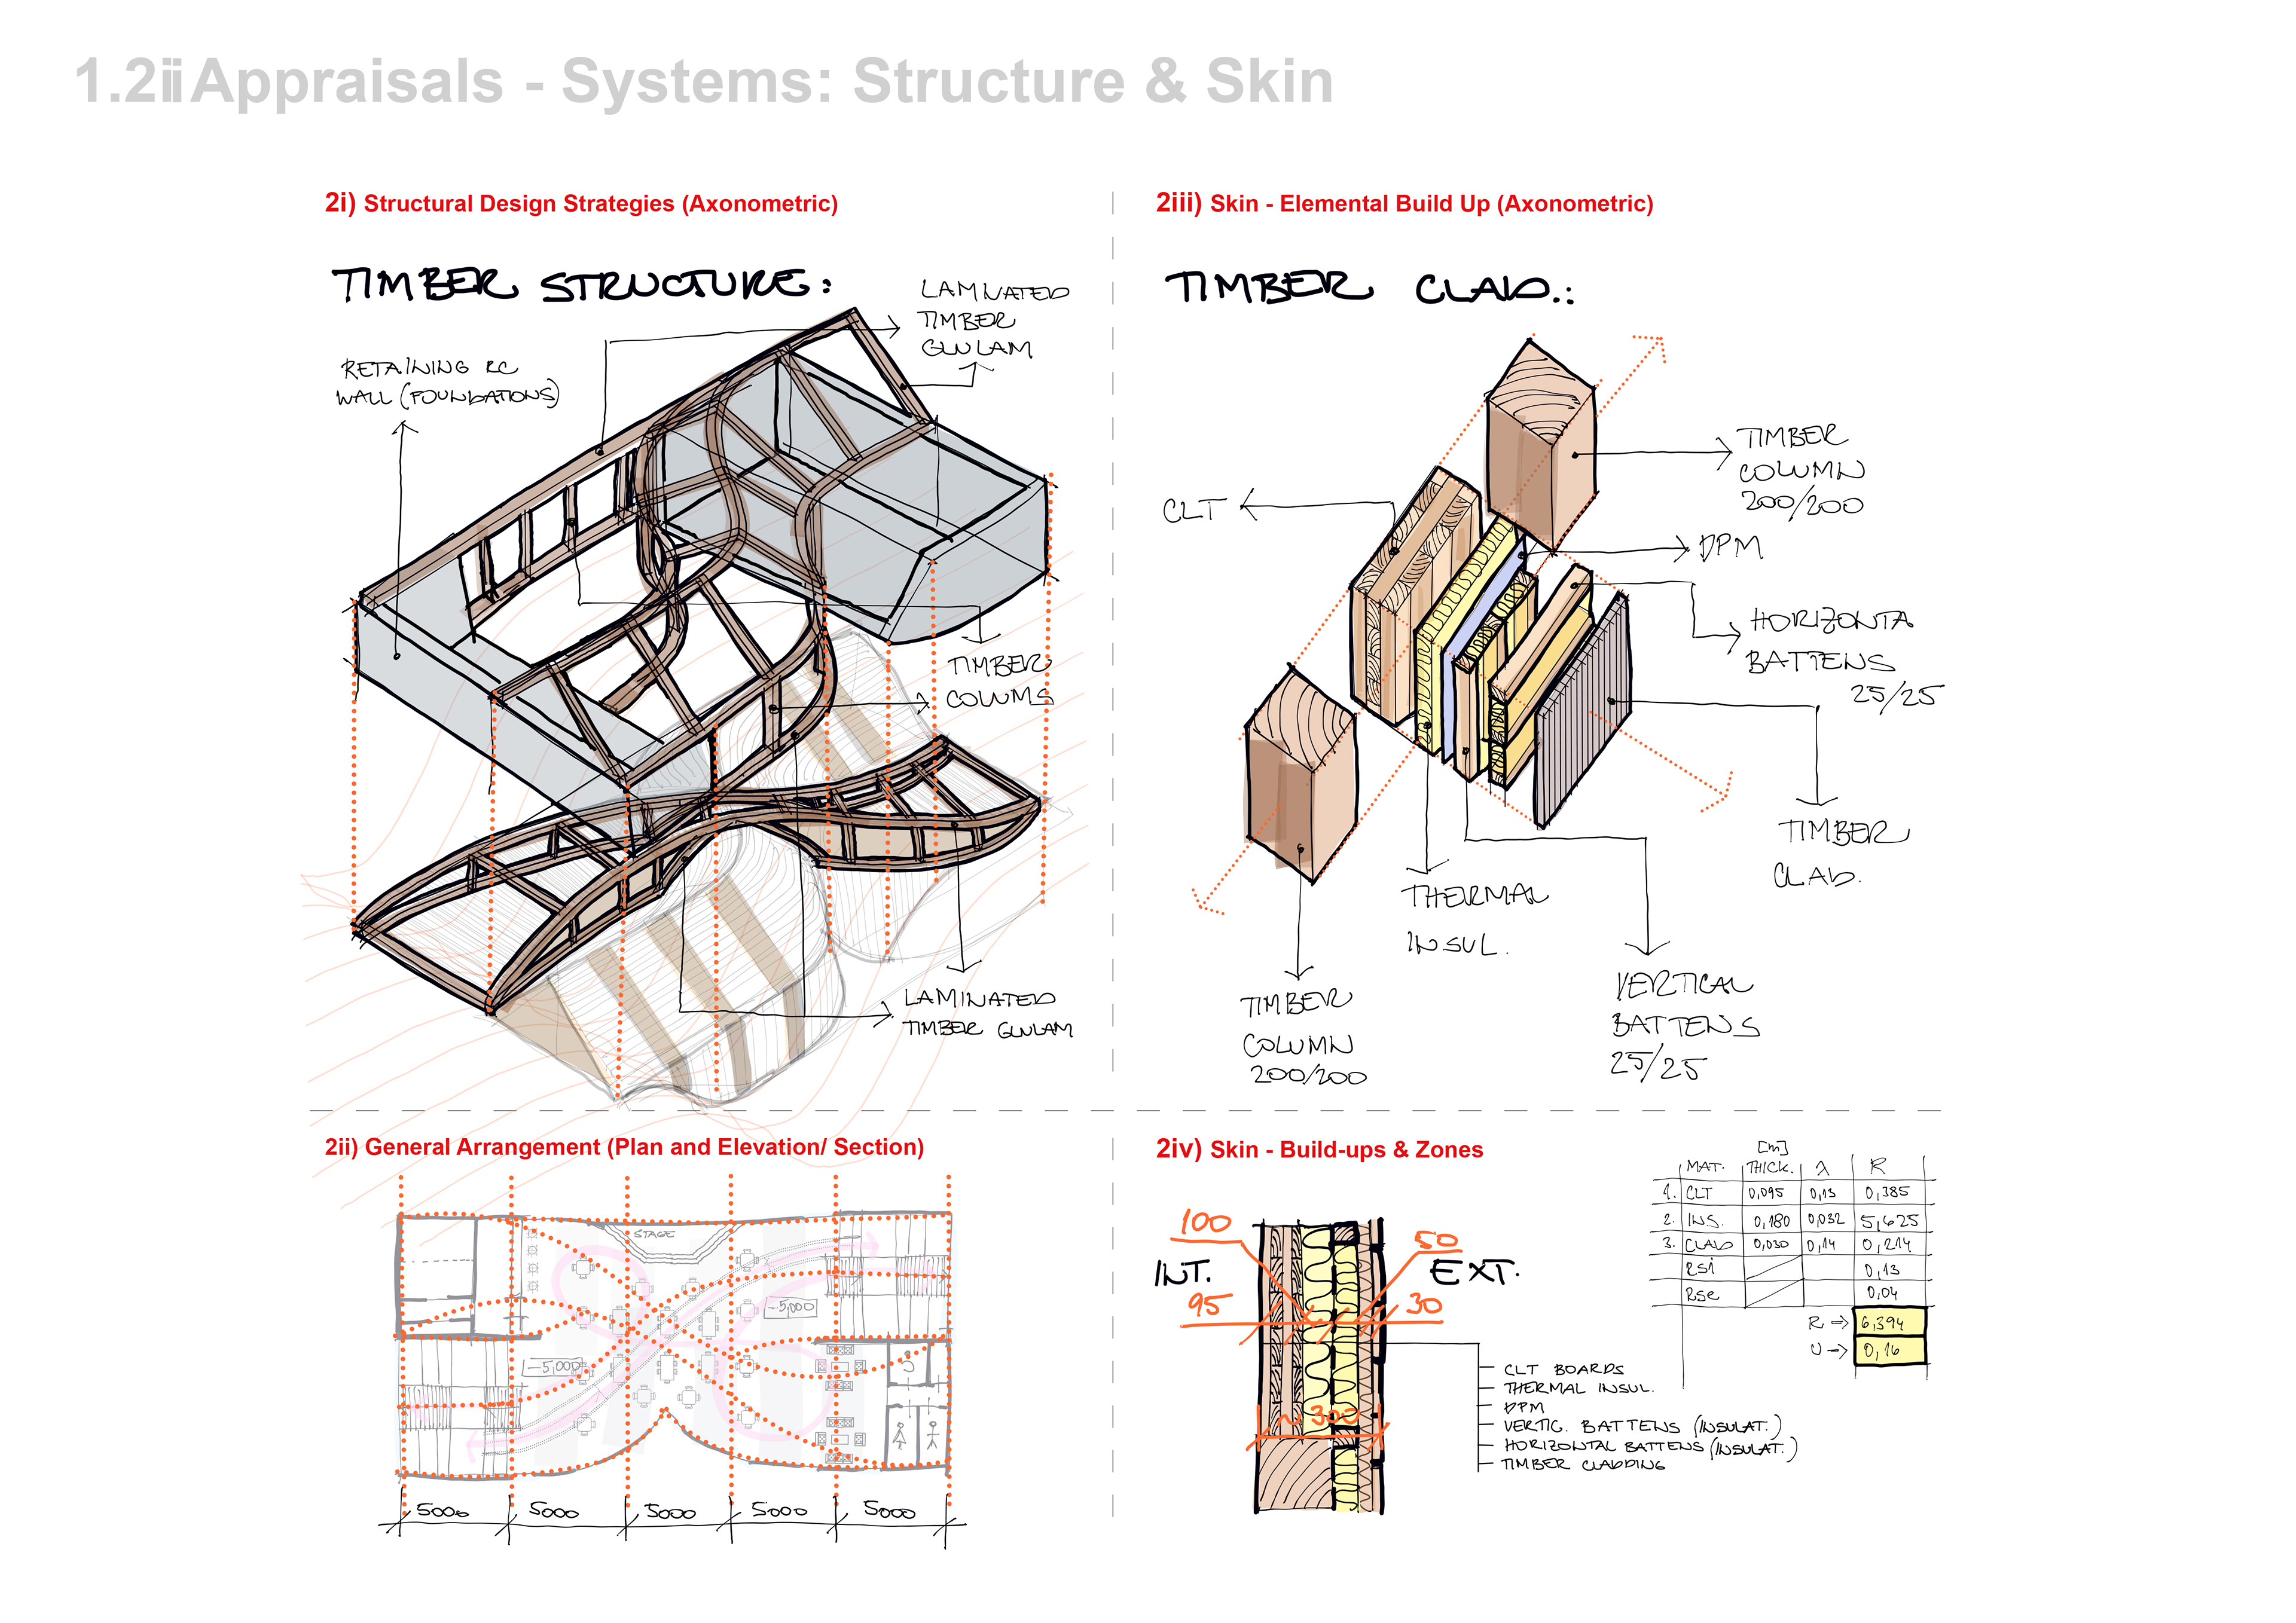 1.2ii Appraisals - Systems: Structure & Skin
2i) Structural Design Strategies (Axonometric)
TIMBER STRUCTURE:
LAMINATED
TIMBER
GLULAM
RETAINING RC
WALL (FOUNDATIONS)
TIMBER
COLUMS
LAMINATED
TIMBER GLULAM
2iii) Skin - Elemental Build Up (Axonometric)
TIMBER CLAD.:
TIMBER
COLUMN
200/200
CLT
DPM
HORIZONTA
BATTENS
25/25
TIMBER
CLAD.
THERMAL
INSUL.
VERTICAL
BATTENS
25/25
TIMBER
COLUMN
200/200
2ii) General Arrangement (Plan and Elevation/ Section)
STAGE
-5,000
-5,000
5000 5000 5000 5000 5000
2iv) Skin - Build-ups & Zones
100
50
INT.
EXT.
95
30
~300
CLT BOARDS
THERMAL INSUL.
DPM
VERTIC. BATTENS (INSULAT.)
HORIZONTAL BATTENS (INSULAT.)
TIMBER CLADDING
[m]
MAT. THICK. λ R
1. CLT 0,095 0,13 0,385
2. INS. 0,180 0,032 5,625
3. CLAD 0,030 0,14 0,214
Rsi 0,13
Rse 0,04
R → 6,394
U → 0,16